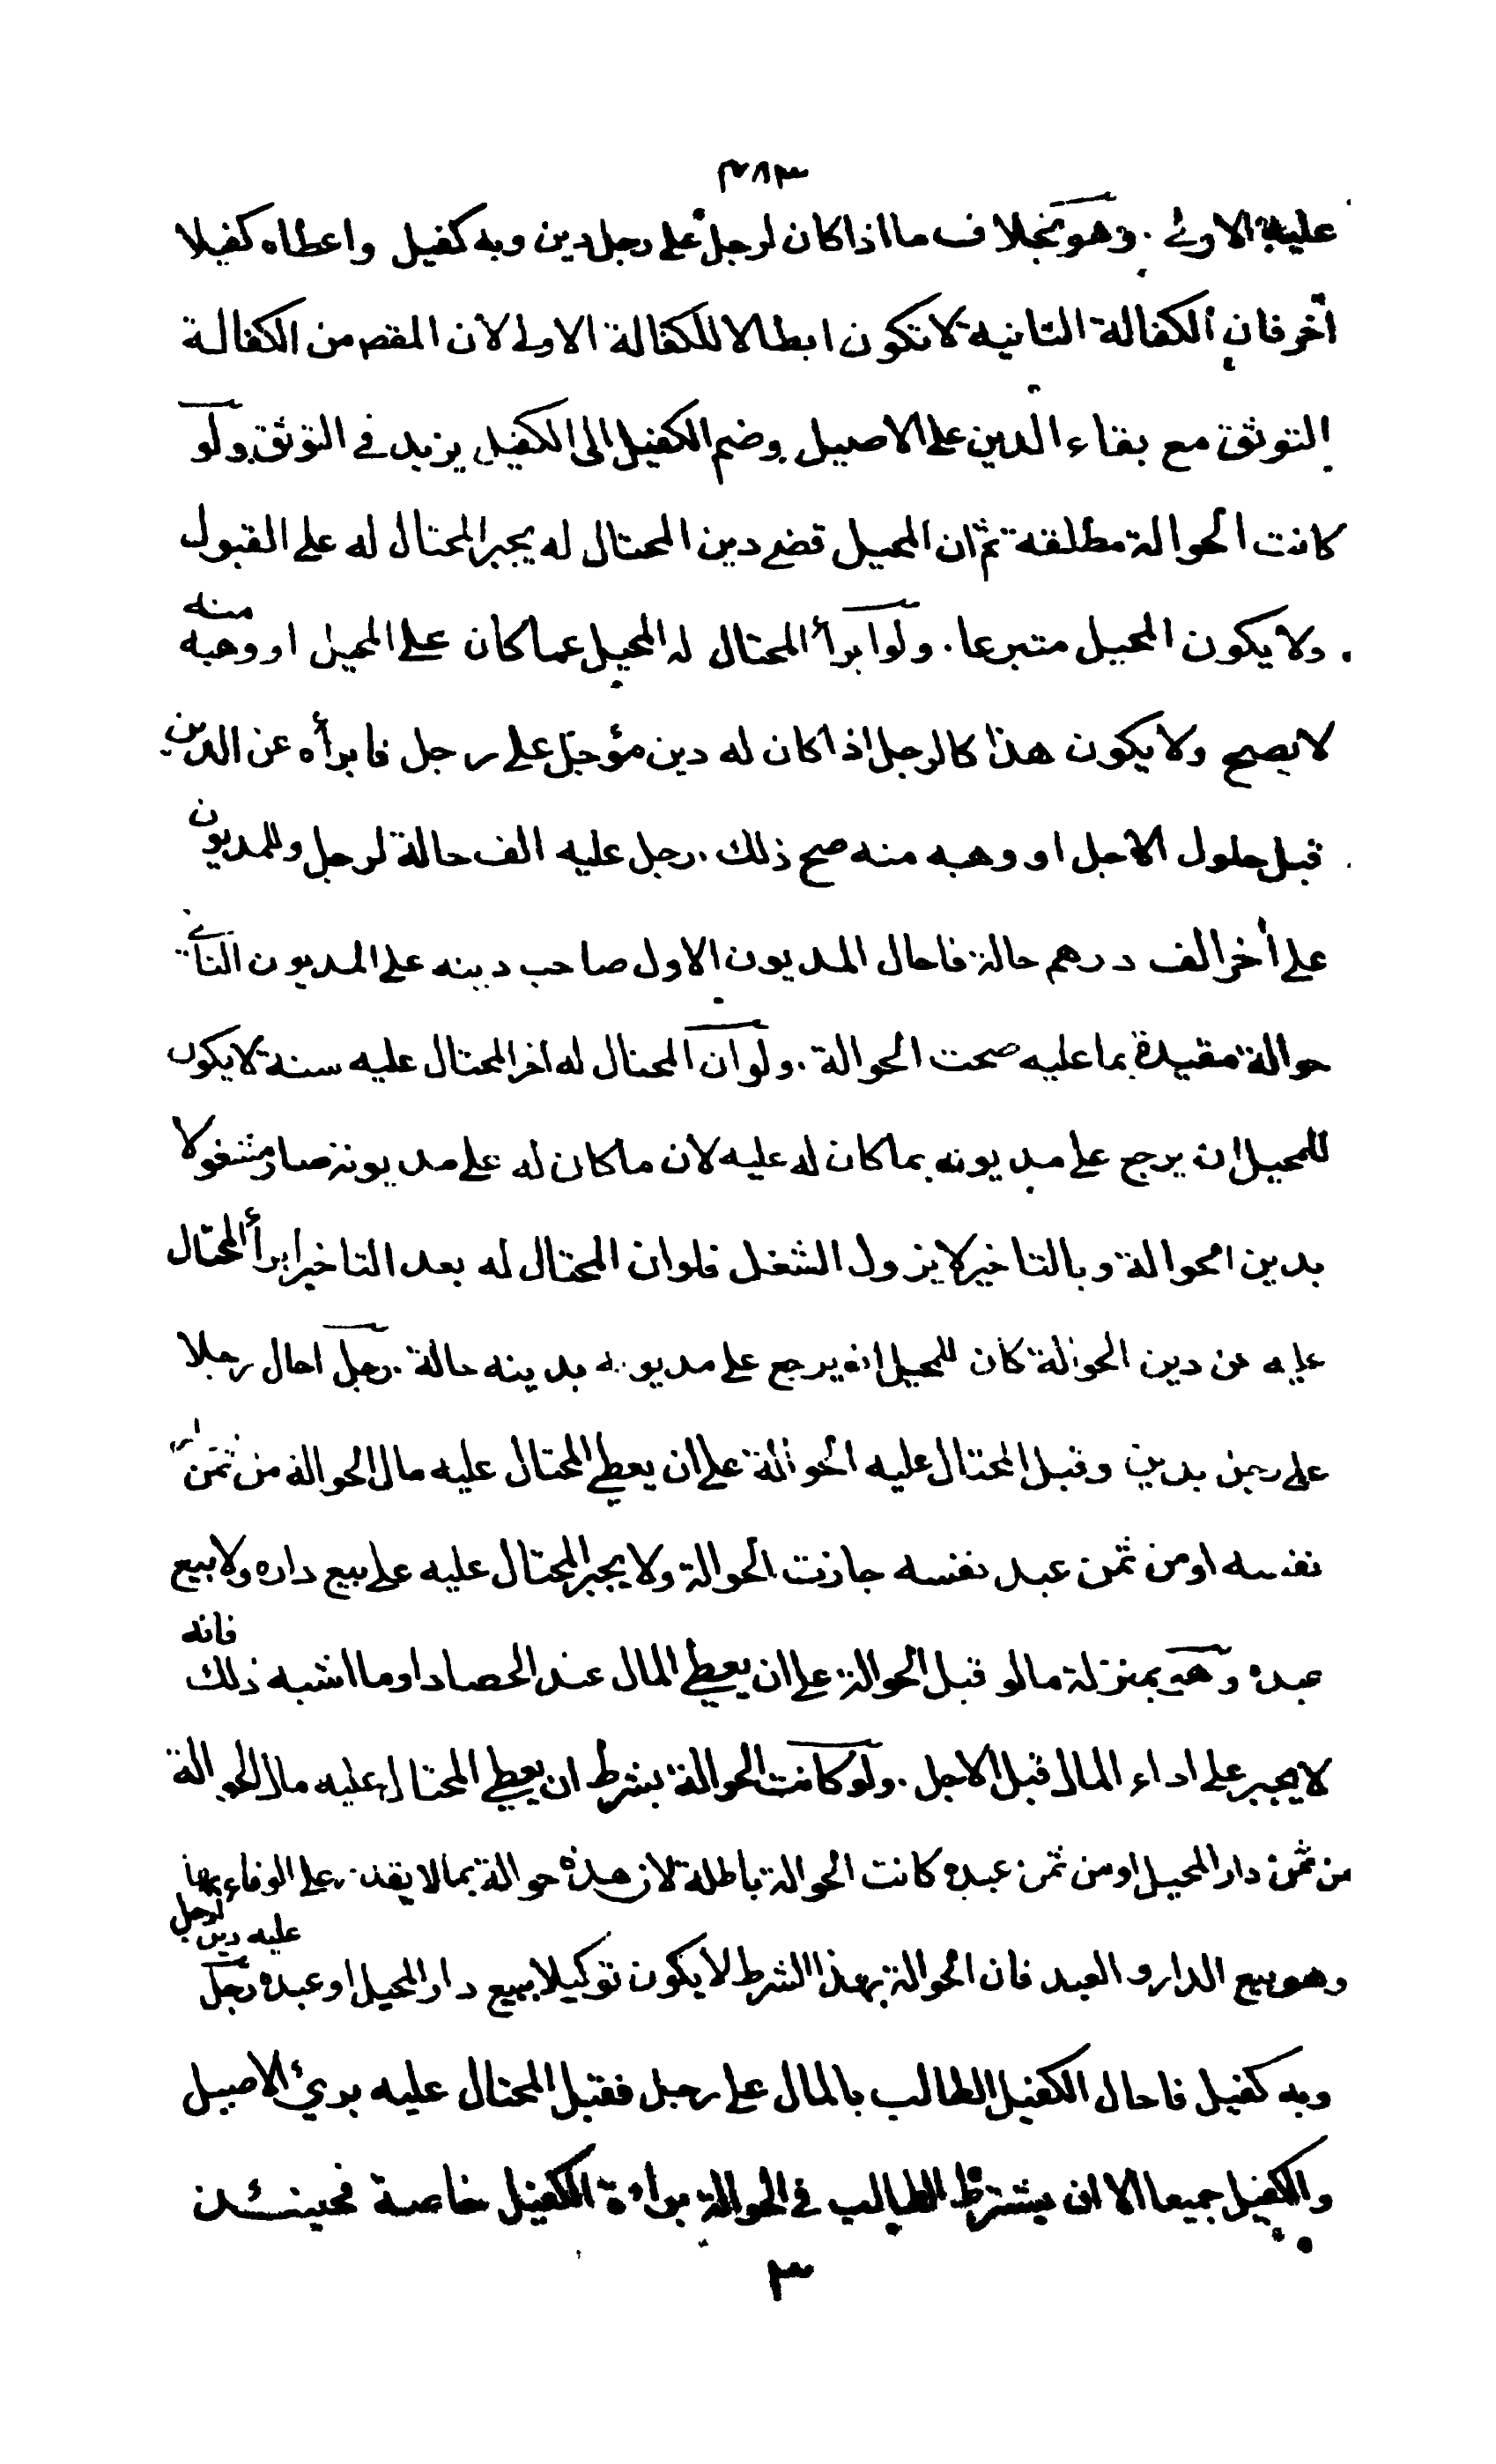 ٣٨٣
عليه الاولى . وهو بخلاف ما اذا كان لرجل على رجل دين وبه كفيل واعطاه كفيلا
أخر فان الكفالة الثانية لا تكون ابطالا للكفالة الاولى لان المقصـ من الكفالة
التوثق مع بقاء الدين على الاصيل وضم الكفيل الى الكفيل يزيد في التوثق ولو
كانت الحوالة مطلقة ثم ان المحيل قضى دين المحتال له يجبر المحتال له على القبول
ولا يكون المحيل متبرعا . ولو ابرأ المحتال له المحيل عما كان على المحيل او وهبه منه
لا يصح ولا يكون هذا كالرجل اذا كان له دين مؤجل على رجل فابرأه عن الدين
قبل حلول الاجل او وهبه منه صح ذلك . رجل عليه الف حالة لرجل وللمديون
على أخر الف درهم حالة فاحال المديون الاول صاحب دينه على المديون الثاني
حوالة مقيدة بما عليه صحت الحوالة . ولو ان المحتال له اخر المحتال عليه سنة لا يكون
للمحيل ان يرجع على مديونه بما كان له عليه لان ما كان له على مديونه صار مشغولا
بدين الحوالة وبالتاخير لا يزول الشغل فلو ان المحتال له بعد التاخير ابرأ المحتال
عليه عن دين الحوالة كان للمحيل ان يرجع على مديونه بدينه حالة . رجل احال رجلا
على رجل بدين وقبل المحتال عليه الحوالة على ان يعطي المحتال عليه مال الحوالة من ثمن دار
نفسه او من ثمن عبد نفسه جازت الحوالة ولا يجبر المحتال عليه على بيع داره ولا بيع
عبده وهو بمنزلة ما لو قبل الحوالة على ان يعطي المال عند الحصاد او ما اشبه ذلك فانه
لا يجبر على اداء المال قبل الاجل . ولو كانت الحوالة بشرط ان يعطي المحتال عليه مال الحوالة
من ثمن دار المحيل او من ثمن عبده كانت الحوالة باطلة لان هذه حوالة بما لا يقدر على الوفاء بها
وهو بيع الدار والعبد فان الحوالة بهذا الشرط لا يكون توكيلا ببيع دار المحيل او عبده رجل عليه دين لرجل
وبه كفيل فاحال الكفيل الطالب بالمال على رجل فقبل المحتال عليه بريء الاصيل
والكفيل جميعا الا ان يشترط الطالب في الحوالة براءة الكفيل خاصة فحينئذ
٣